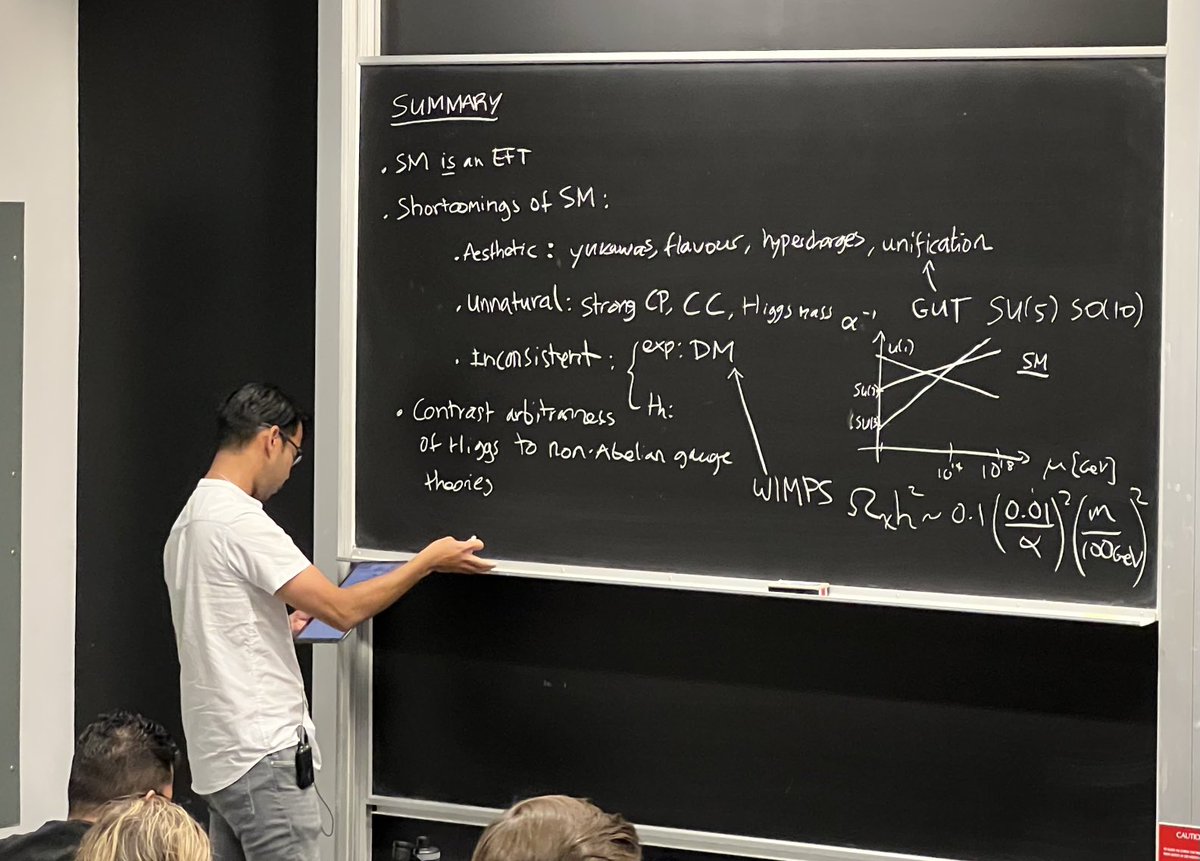 SUMMARY
. SM is an EFT
. Shortcomings of SM:
. Aesthetic: yukawas, flavour, hypercharges, unification
. Unnatural: Strong CP, CC, Higgs mass
GUT SU(5) SO(10)
. Inconsistent: { exp: DM
th:
• Contrast arbitrariness
of Higgs to non-Abelian gauge
theories
α⁻¹
U(1)
SU(2)
SU(3)
SM
10¹⁸
μ [GeV]
WIMPS Ωχh² ~ 0.1 (0.01/α)² (m/100GeV)²
CAUTIO